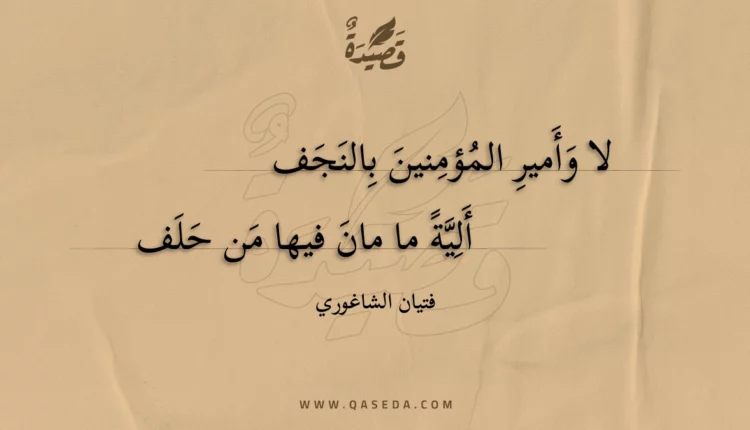 قَصِيْدَةٌ
لا وَأَميرِ المُؤمِنينَ بِالنَجَف
أَلِيَّةً ما مانَ فيها مَن حَلَف
فتيان الشاغوري
WWW.QASEDA.COM